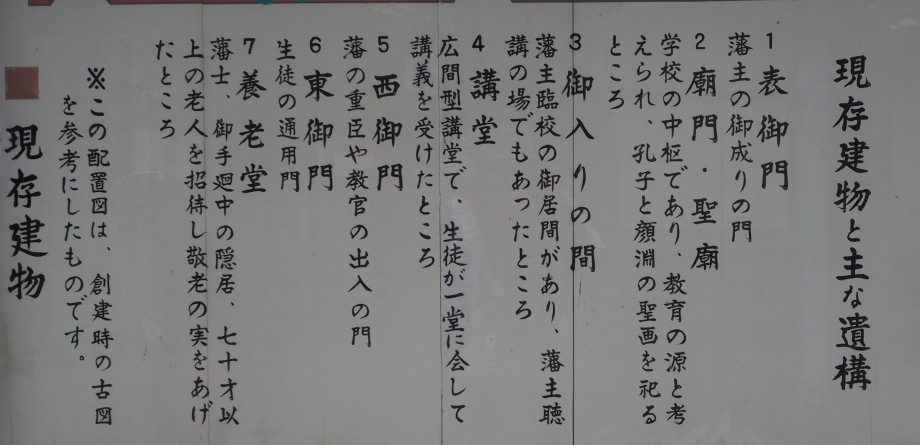 現存建物と主な遺構
1 表御門
藩主の御成りの門
2 廟門・聖廟
学校の中枢であり、教育の源と考
えられ、孔子と顔淵の聖画を祀る
ところ
3 御入りの間
藩主臨校の御居間があり、藩主聴
講の場でもあったところ
4 講堂
広間型講堂で、生徒が一堂に会して
講義を受けたところ
5 西御門
藩の重臣や教官の出入の門
6 東御門
生徒の通用門
7 養老堂
藩士、御手廻中の隠居、七十才以
上の老人を招待し敬老の実をあげ
たところ
※この配置図は、創建時の古図
を参考にしたものです。
現存建物